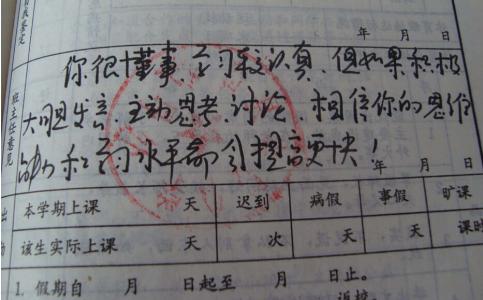 年 月 日
你很懂事，学习较认真，但如果积极
大胆发言，主动思考，讨论，相信你的思维
能力和学习水平都会提高更快！
班主任意见
年 月 日
本学期上课 天 迟到 病假 事假 旷课
该生实际上课 天 次 天 天 课时
1. 假期自 月 日起至 月 日止。